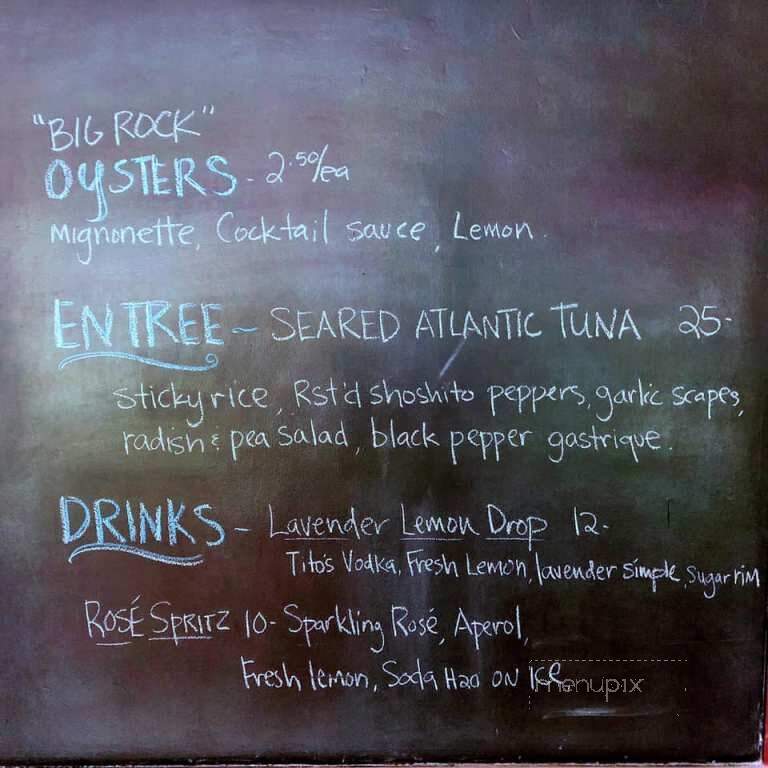 "BIG ROCK"
OYSTERS - 2.50/ea
Mignonette, Cocktail sauce, Lemon.
ENTREE ~ SEARED ATLANTIC TUNA 25-
sticky rice, Rst'd shoshito peppers, garlic scapes,
radish & pea salad, black pepper gastrique.
DRINKS - Lavender Lemon Drop 12-
Tito's Vodka, Fresh Lemon, lavender simple, sugar rim
ROSÉ SPRITZ 10- Sparkling Rosé, Aperol,
Fresh lemon, Soda H2O ON ICE
menupix